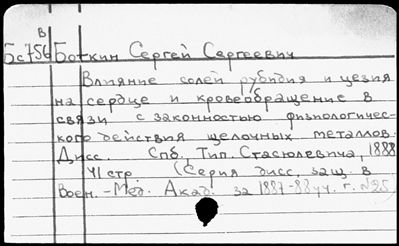 В
Бс756 Боткин Сергей Сергеевич
Влияние солей рубидия и цезия
на сердце и кровеобращение в
связи с законностью физиологичес-
кого действия щелочных металлов.
Дисс. Спб., Тип. Стасюлевича, 1888
41 стр. (Серия дисс, защ. в
Воен.-Мед. Акад. за 1887-88 уч. г. №25